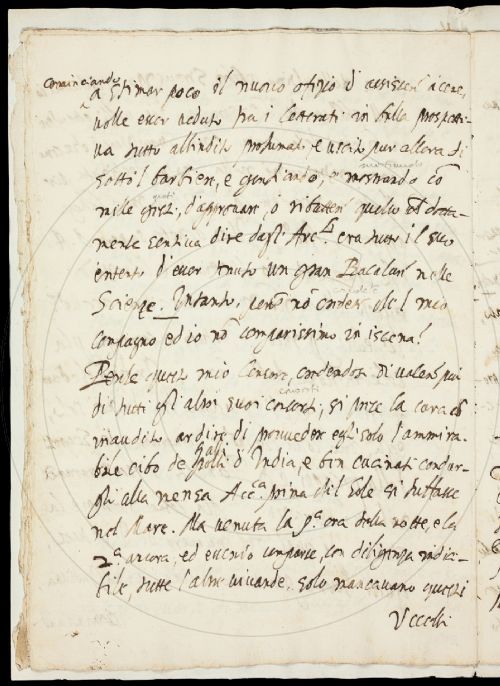 cominciando
a stimar poco il nuovo ofizio d'assister a cene,
volle esser veduto tra i letterati in bella prospetti-
va tutto allindito profumato, e uscito pur allora di
sotto l barbiere, e mostrando cō
mille gesti, d'approvare, o ribattere quello dotta-
mente sentiva dire dagli Acc.ci era tutto il suo
intento d'esser tenuto un gran Baccalare nelle
Scienze. Intanto, però nō che l mio
compagno ed io nō comparissimo in iscena!
Perche questo mio Censore, credendosi di valere piu
di tutti gli altri suoi consorti, si prese la cura cō
inaudito ardire di provvedere egli solo l'ammira-
bile cibo de Galli d'India, e ben cucinati condur-
gli alla mensa Acc.ca prima che l Sole si tuffasse
nel Mare. Ma venuta la p.a ora della notte, e la
2.a ancora, ed essendo comparse, con diligenza indici-
bile, tutte l'altre vivande, solo mancavano questi
Uccelli